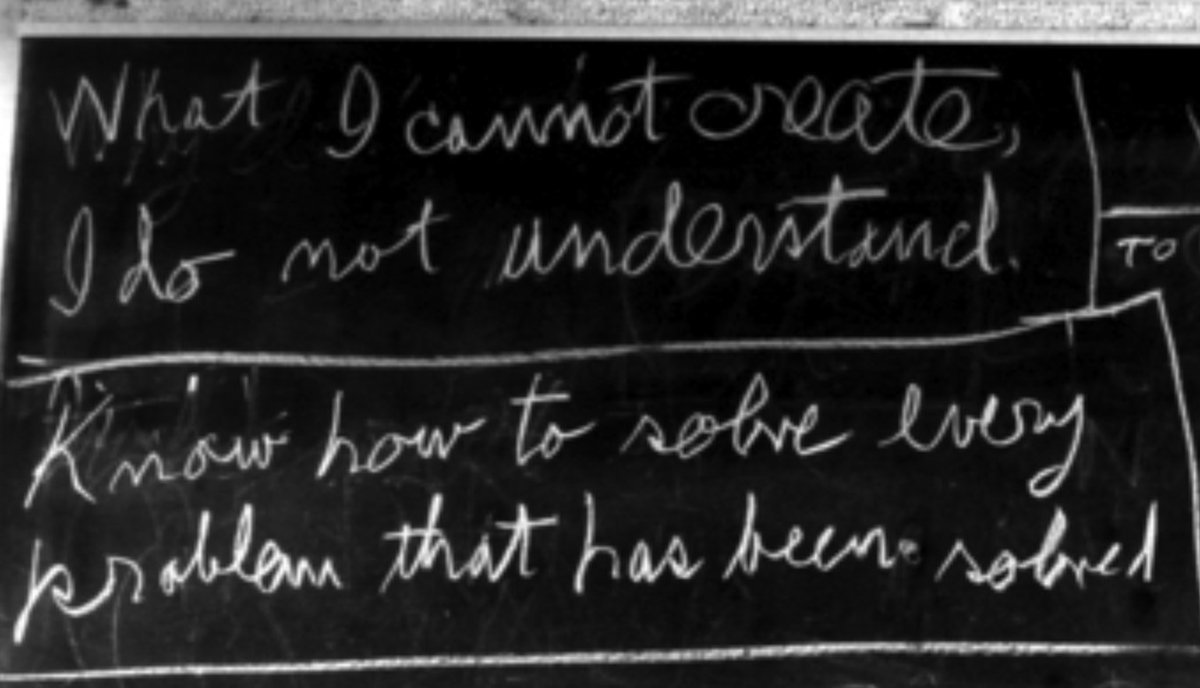 What I cannot create,
I do not understand.
TO
Know how to solve every
problem that has been solved